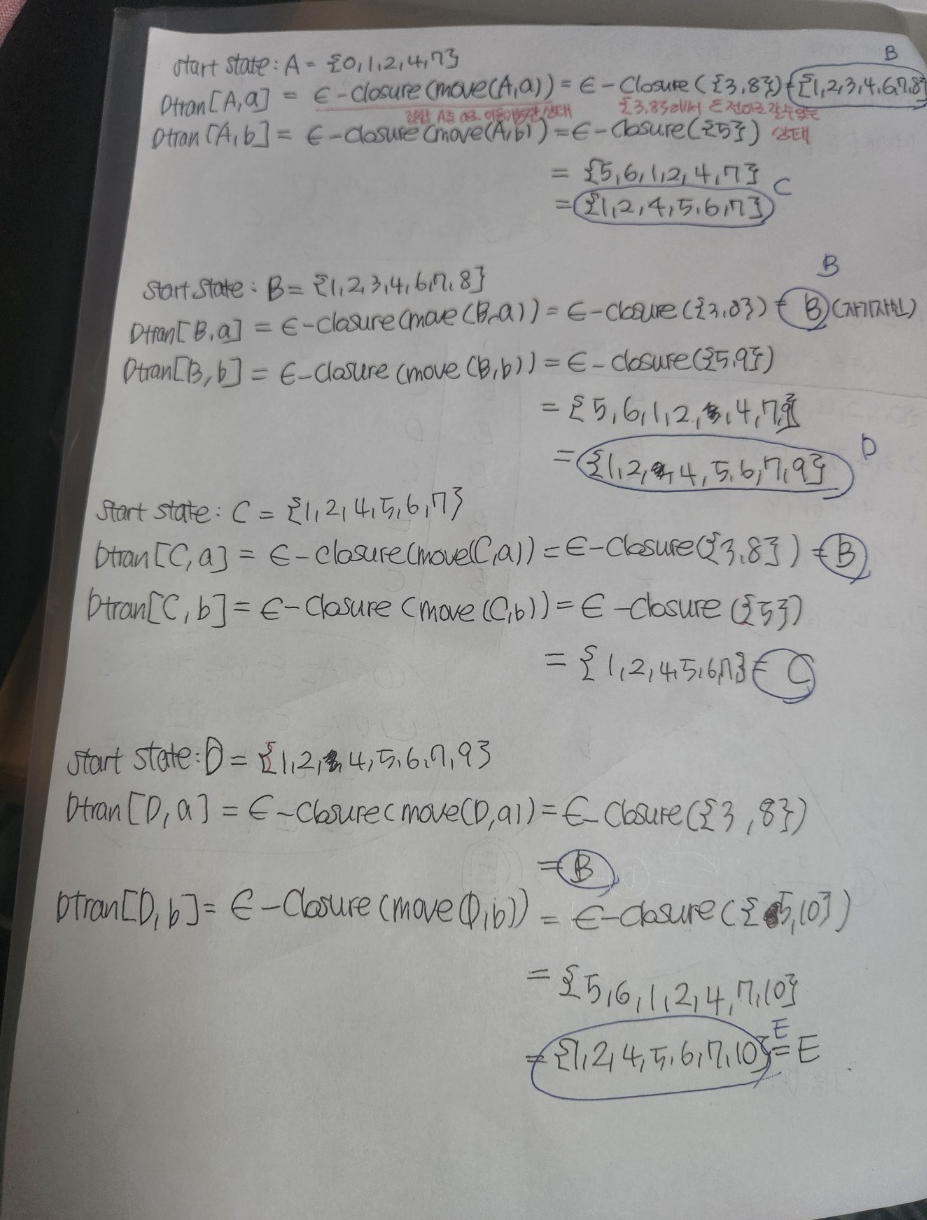 start state: A = {0,1,2,4,7}
B
Dtran[A,a] = ϵ-closure(move(A,a)) = ϵ-Closure({3,8}) = {1,2,3,4,6,7,8}
A {3,8} ϵ
Dtran[A,b] = ϵ-closure(move(A,b)) = ϵ-Closure({5}) 상태
= {5,6,1,2,4,7}
= {1,2,4,5,6,7} C
start state: B = {1,2,3,4,6,7,8}
B
Dtran[B,a] = ϵ-closure(move(B,a)) = ϵ-closure({3,8}) = B (자기자신)
Dtran[B,b] = ϵ-closure(move(B,b)) = ϵ-closure({5,9})
= {5,6,1,2,4,7,9}
= {1,2,4,5,6,7,9} D
start state: C = {1,2,4,5,6,7}
Dtran[C,a] = ϵ-closure(move(C,a)) = ϵ-closure({3,8}) = B
Dtran[C,b] = ϵ-closure(move(C,b)) = ϵ-closure({5})
= {1,2,4,5,6,7} = C
start state: D = {1,2,4,5,6,7,9}
Dtran[D,a] = ϵ-closure(move(D,a)) = ϵ-closure({3,8})
= B
Dtran[D,b] = ϵ-closure(move(D,b)) = ϵ-closure({5,10})
= {5,6,1,2,4,7,10}
= {1,2,4,5,6,7,10} = E
E